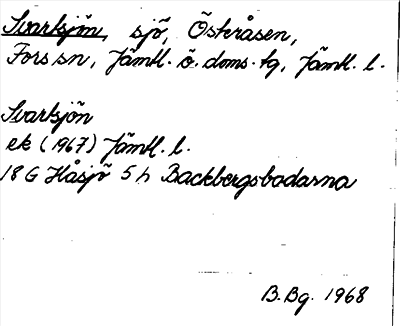 Svarksjön, sjö, Österåsen,
Fors sn, Jämtl. ö. doms. tg, Jämtl. l.
Svarksjön
ek (1967) Jämtl. l.
18 G Håsjö 5 h Backbergsbodarna
B.Bg. 1968